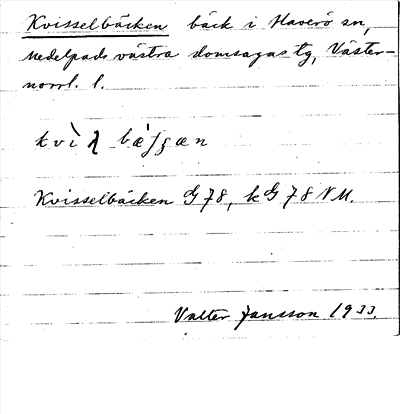 Kvisselbäcken bäck i Haverö sn,
Medelpads västra domsagas tg, Väster-
norrl. l.
Kvisselbäcken G 78, k G 78 NV.
Valter Jansson 1933.